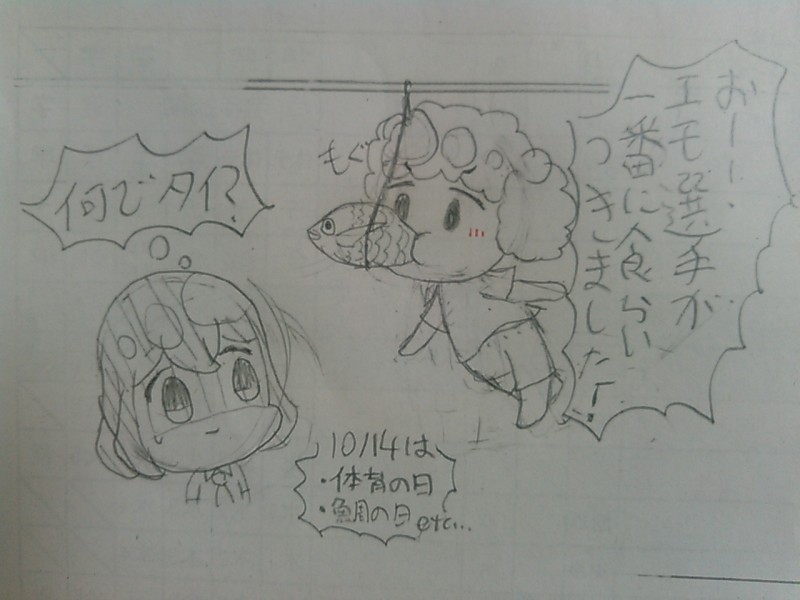 おーー!
エモ選手が
一番に食らい
つきましたー!
もぐ
何でタイ?
10/14は
・体育の日
・鯛の日etc...